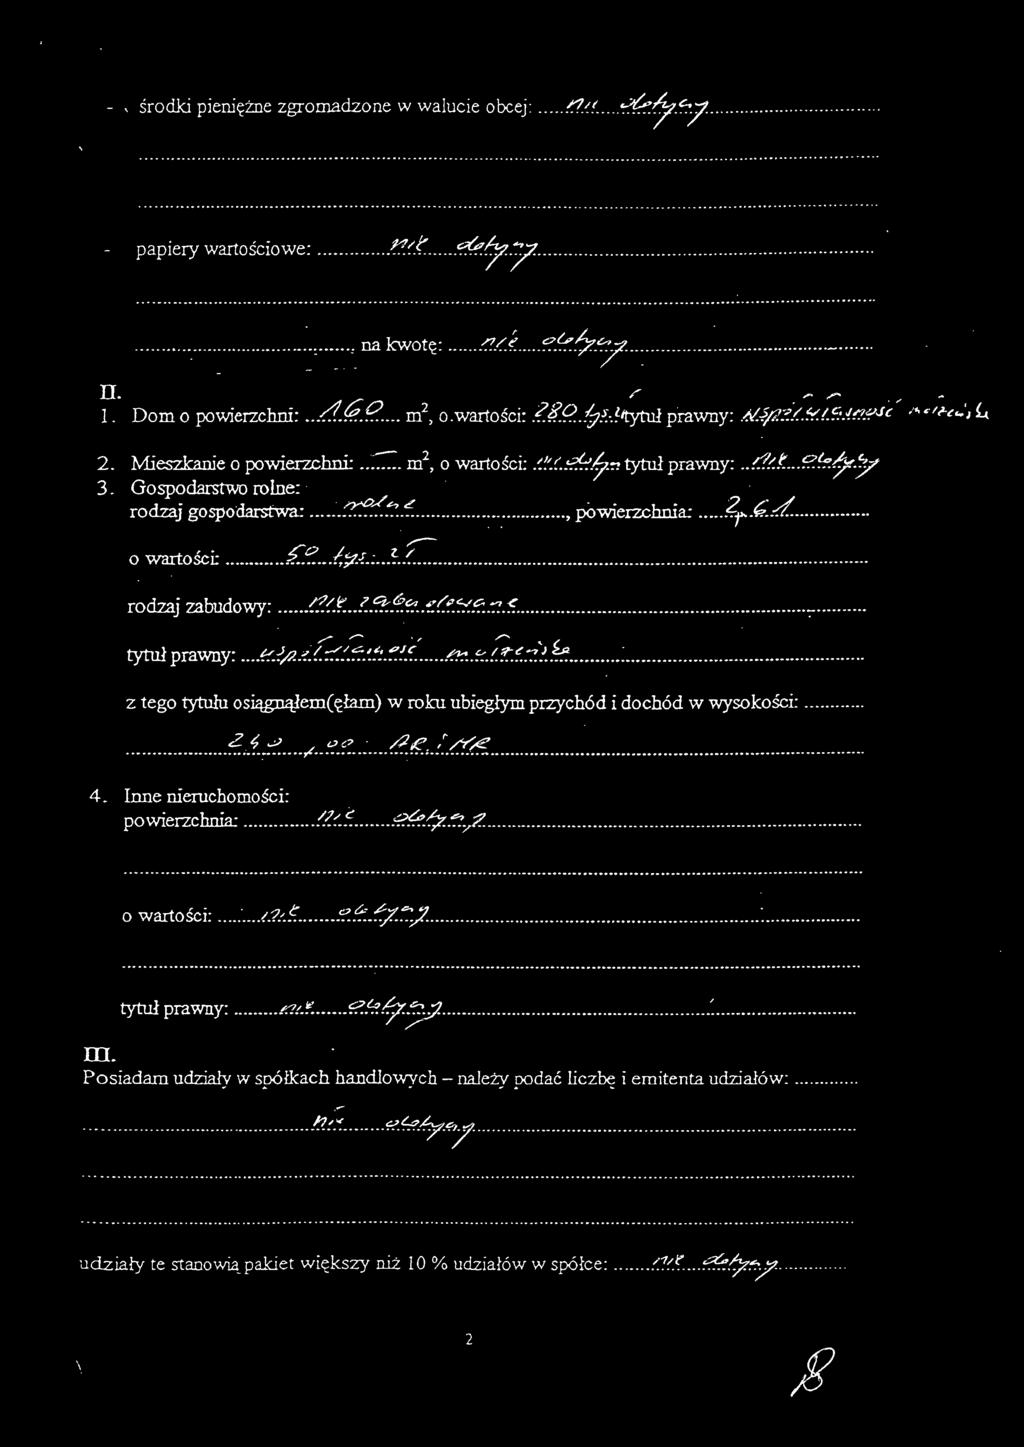 - środki pieniężne zgromadzone w walucie obcej: ..... nie dotyczy .....
- papiery wartościowe: ..... nie dotyczy .....
....., na kwotę: ..... nie dotyczy .....
II.
1. Dom o powierzchni: ..... 160 ..... m², o wartości: 280 tys. zł tytuł prawny: współwłasność małżeńska
2. Mieszkanie o powierzchni: ..... – ..... m², o wartości: nie dotyczy tytuł prawny: ..... nie dotyczy
3. Gospodarstwo rolne:
rodzaj gospodarstwa: ..... rolne ....., powierzchnia: ..... 2,61 .....
o wartości: ..... 50 tys. zł .....
rodzaj zabudowy: ..... nie zabudowane .....
tytuł prawny: ..... współwłasność małżeńska .....
z tego tytułu osiągnąłem(ęłam) w roku ubiegłym przychód i dochód w wysokości: .....
..... ,00 ARiMR .....
4. Inne nieruchomości:
powierzchnia: ..... nie dotyczy .....
o wartości: ..... nie dotyczy .....
tytuł prawny: ..... nie dotyczy .....
III.
Posiadam udziały w spółkach handlowych – należy podać liczbę i emitenta udziałów: .....
..... nie dotyczy .....
udziały te stanowią pakiet większy niż 10 % udziałów w spółce: ..... nie dotyczy .....
2